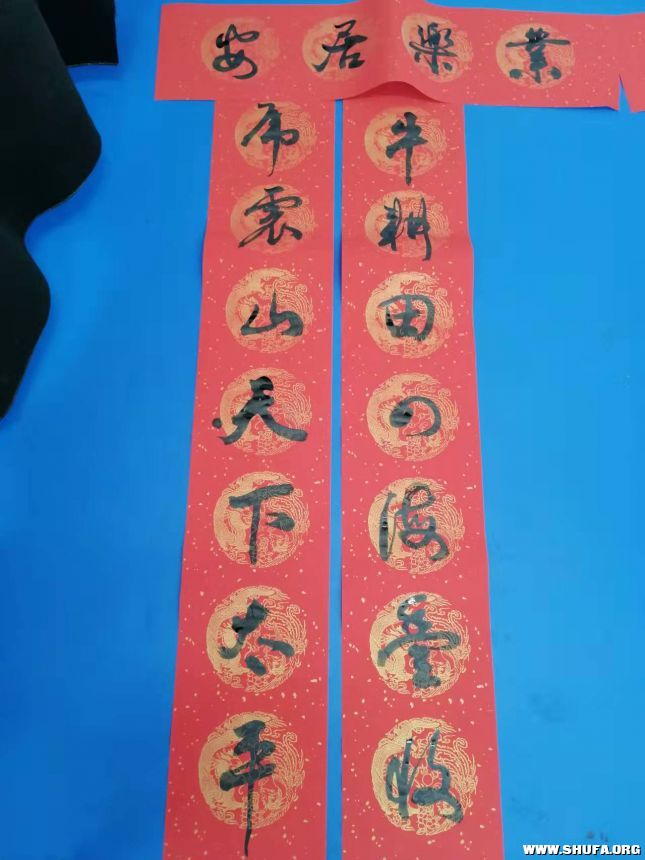 安居樂業
牛耕田四海豐收
虎震山天下太平
WWW.SHUFA.ORG